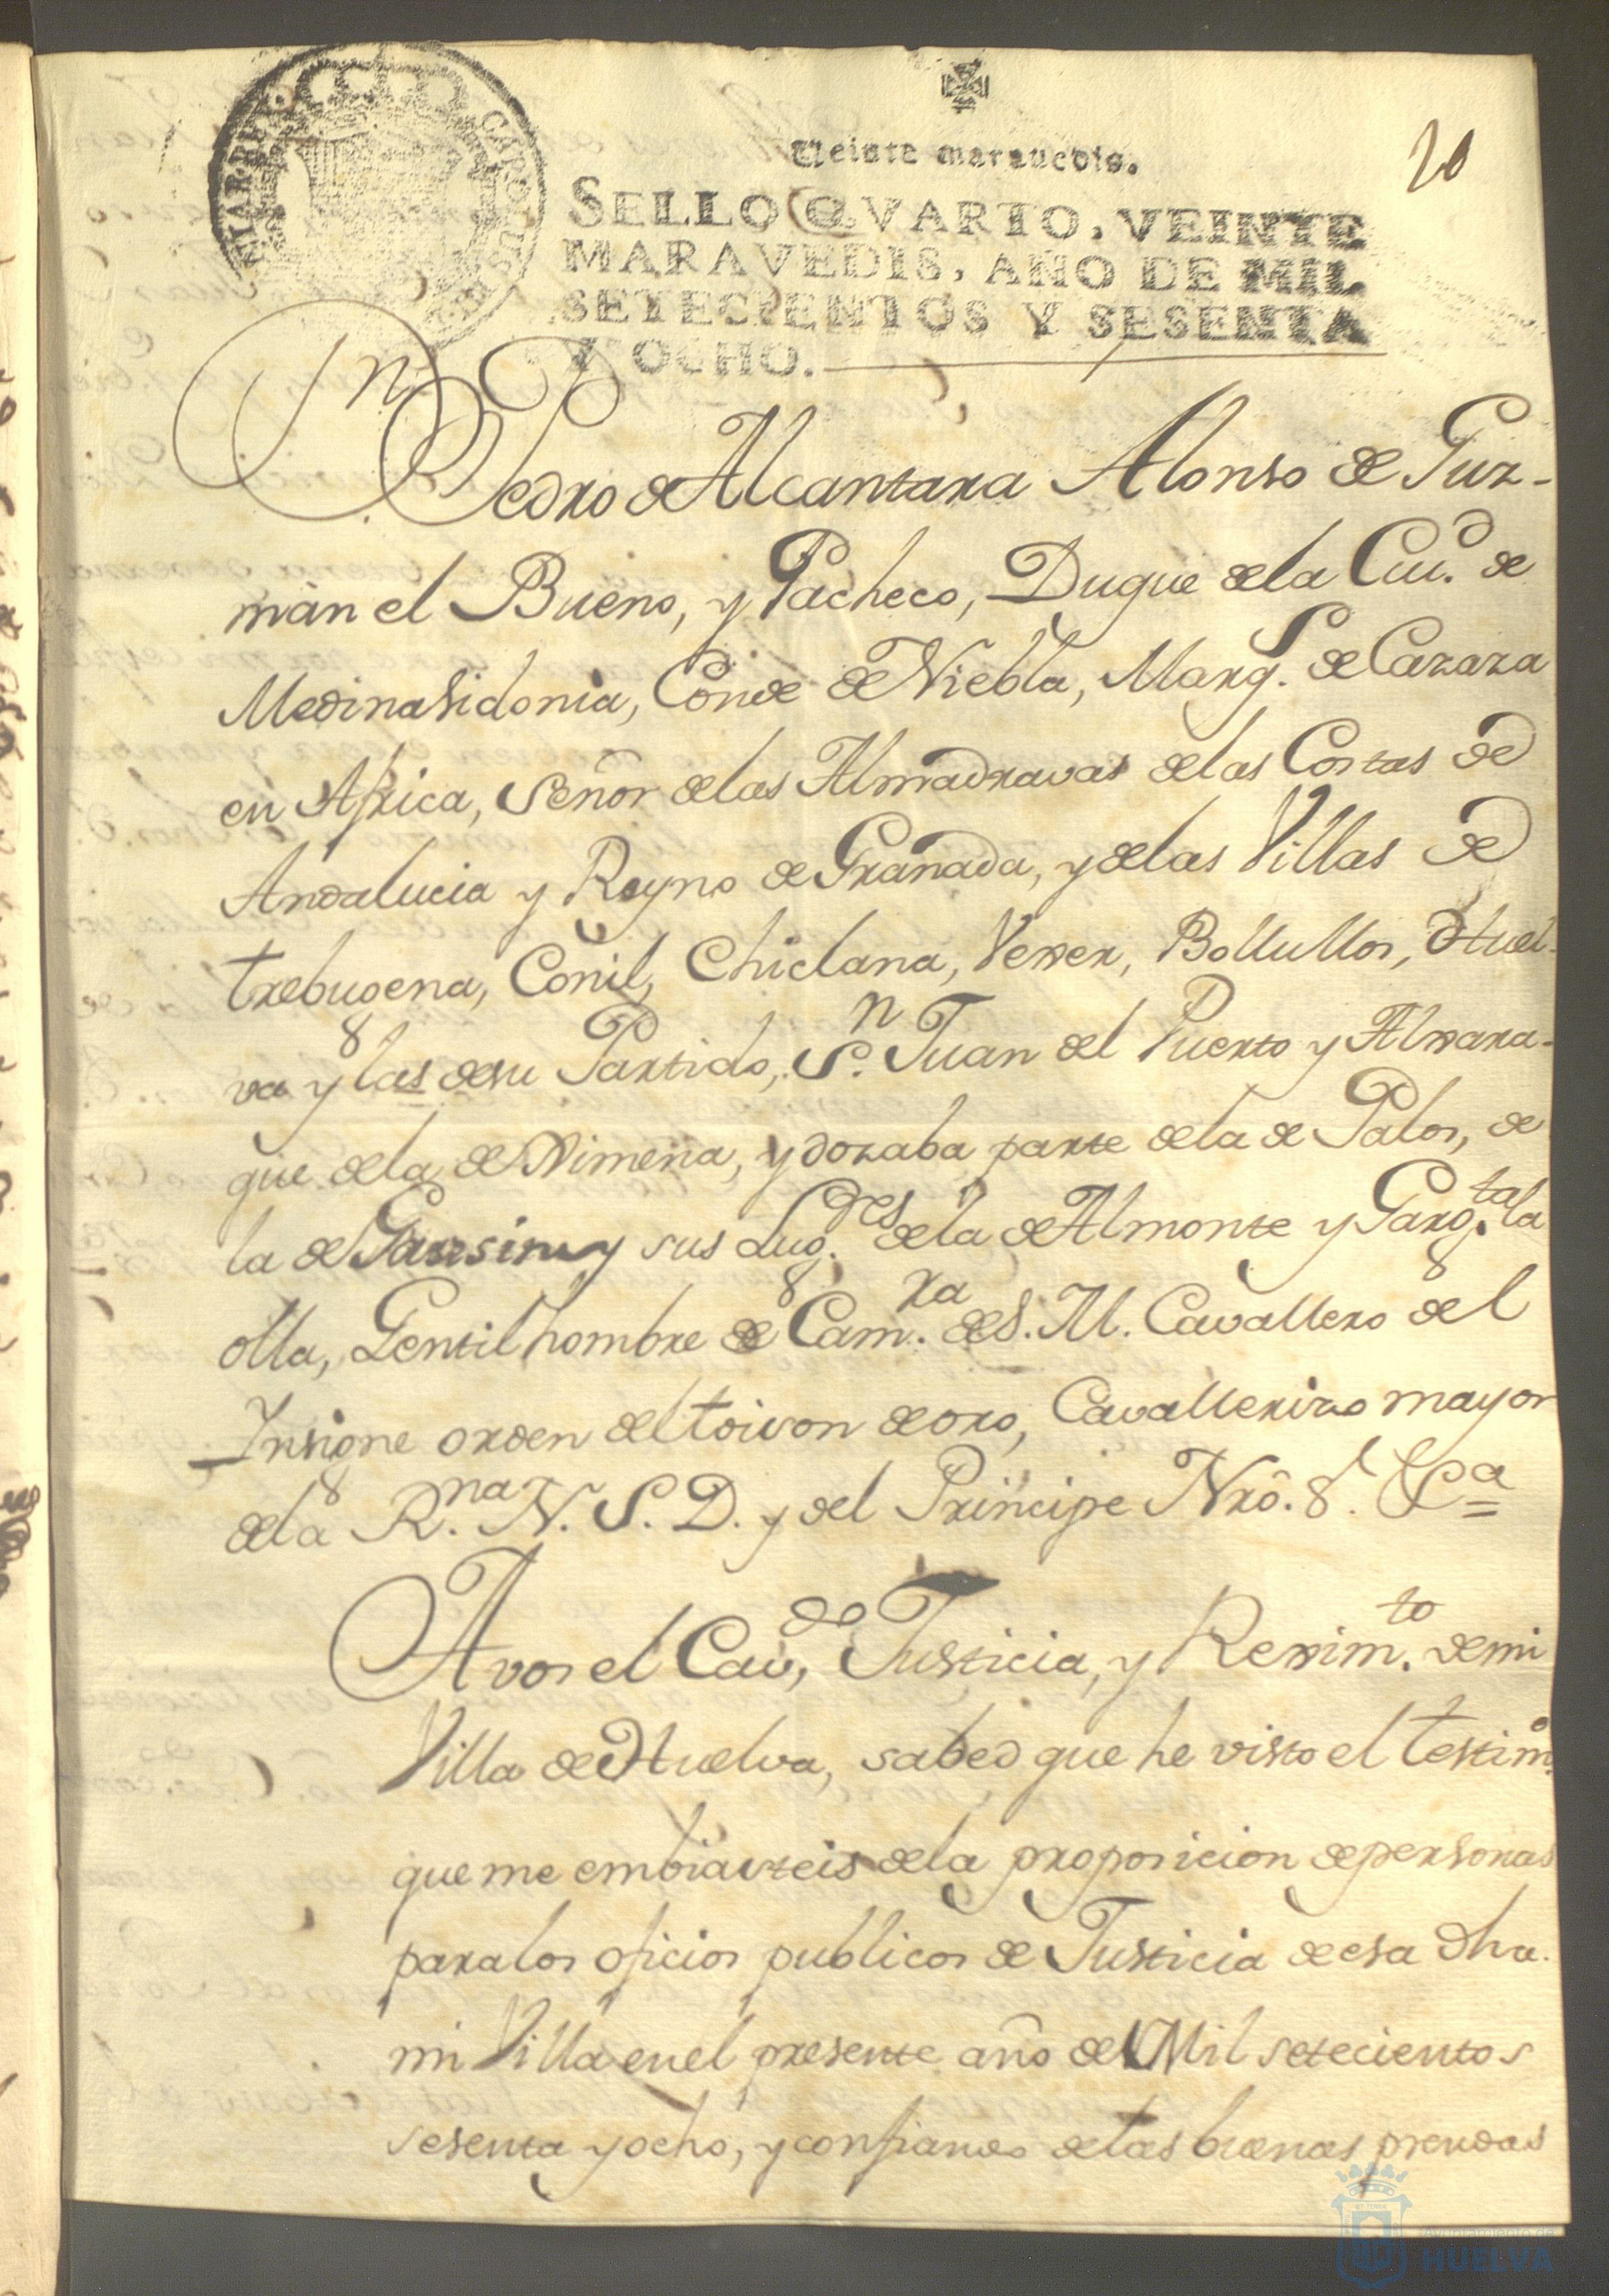 20
Veinte maravedis.
SELLO QVARTO, VEINTE
MARAVEDIS, AÑO DE MIL
SETECIENTOS Y SESENTA
Y OCHO.
Dn Pedro de Alcantara Alonso de Guz-
màn el Bueno, y Pacheco, Duque de la Ciud. de
Medinasidonia, Conde de Niebla, Marqs. de Cazaza
en Africa, Señor de las Almadravas de las Costas de
Andalucia y Reyno de Granada, y de las Villas de
trebugena, Conil, Chiclana, Vexer, Bollullos, Huel-
va y las de su Partido, Sn. Juan del Puerto y Alxara-
que de la de Ximena, y dozaba parte de la de Palos, de
la de Gausin y sus Lugres. de la de Almonte y Gargta. la
olla, Gentil hombre de Camra. de S. M. Cavallero del
Insigne orden del toison de oro, Cavallerizo mayor
de la Rna. N. S. D. y del Principe Nrô. Sr. &ca=
A vos el Cavdo, Justicia, y Reximto. de mi
Villa de Huelva, sabed que he visto el testimo.
que me embiasteis de la proposicion de personas
para los oficios publicos de Justicia de esa dha.
mi Villa en el presente año de Mil setecientos
sesenta y ocho, y confiando de las buenas prendas
Ayuntamiento de
HUELVA